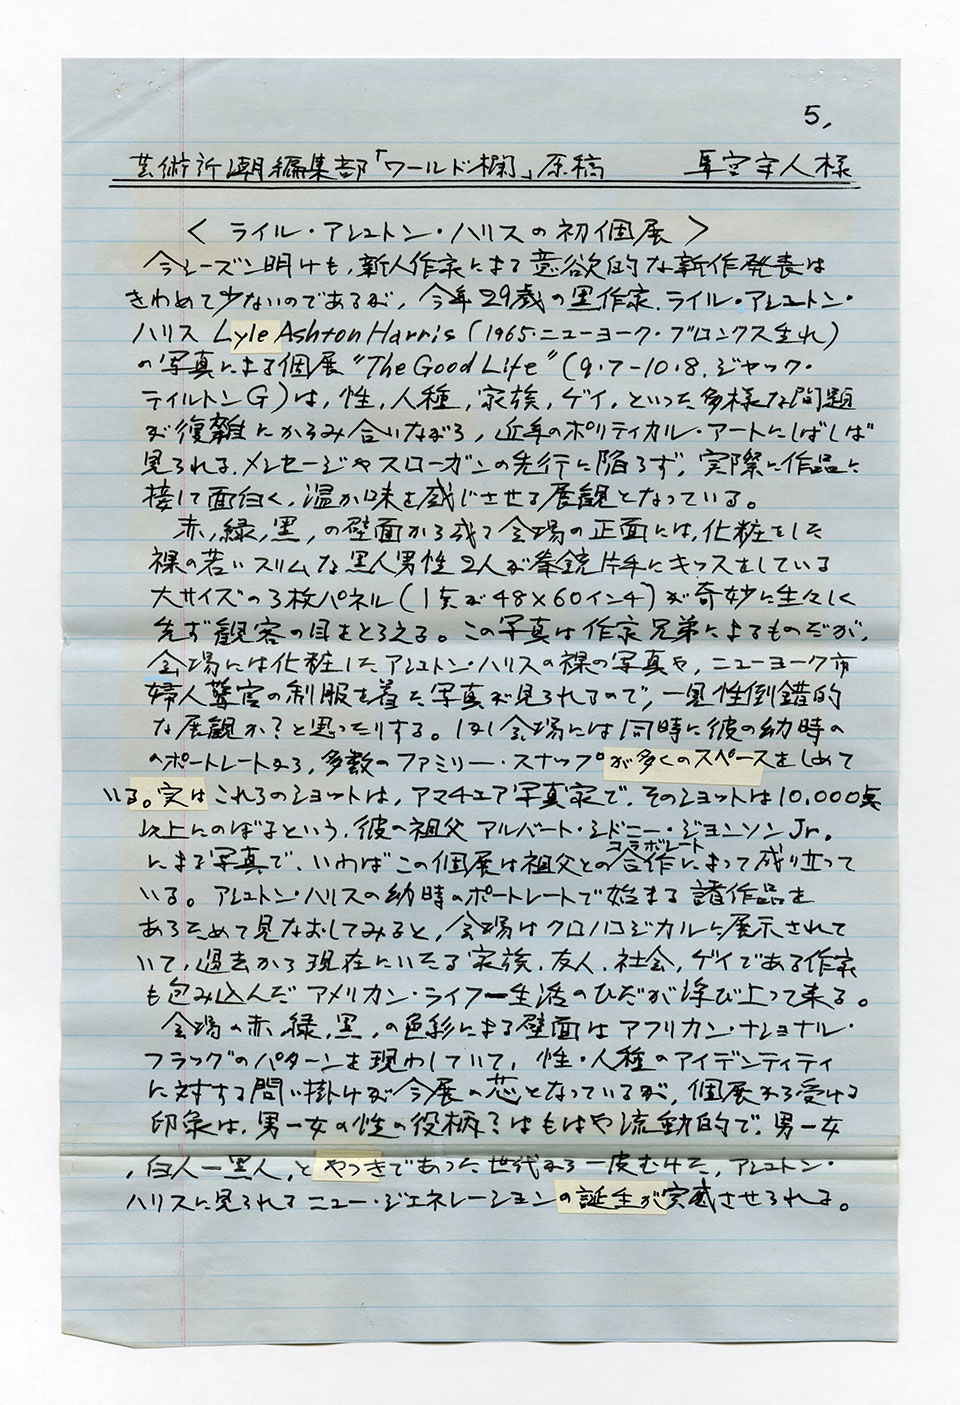 5,
芸術新潮編集部「ワールド欄」原稿 宇人様
〈 ライル・アシュトン・ハリスの初個展 〉
今シーズン明けも,新人作家による意欲的な新作発表は
きわめて少ないのであるが, 今年29歳の黒作家.ライル・アシュトン・
ハリス Lyle Ashton Harris (1965.ニューヨーク・ブロンクス生れ)
の写真による個展 "The Good Life" (9.7-10.8.ジャック・
ティルトンG)は, 性,人種,家族,ゲイ,といった多様な問題
が復雑にからみ合いながら, 近年のポリティカル・アートにしばしば
見られる.メッセージやスローガンの先行に陥らず, 実際に作品に
接して面白く,温か味を感じさせる展観となっている。
赤,緑,黒,の壁面から成る会場の正面には,化粧をした
裸の若いスリムな黒人男性2人が拳銃片手にキッスをしている
大サイズの3枚パネル (1点が48×60インチ)が奇妙に生々しく
先ず観客の目をとらえる。この写真は作家兄弟によるものだが,
会場には化粧したアシュトン・ハリスの裸の写真や, ニューヨーク市
婦人警官の制服を着た写真が見られるので, 一見性倒錯的
な展観か?と思ったりする。但し会場には同時に彼の幼時の
ポートレートから, 多数のファミリー・スナップが多くのスペースをしめて
いる。実はこれらのショットは, アマチュア写真家で,そのショットは10,000点
以上にのぼるという,彼の祖父 アルバート・シドニー・ジョンソンJr.
コラボレート
による写真で, いわばこの個展は祖父との合作によって成り立って
いる。アシュトン・ハリスの幼時のポートレートで始まる諸作品を
あらためて見なおしてみると, 会場はクロノロジカルに展示されて
いて,過去から現在にいたる家族.友人.社会,ゲイである作家
も包み込んだ アメリカン・ライフー生活のひだが浮び上って来る。
会場の赤,緑,黒,の色彩による壁面はアフリカン・ナショナル・
フラッグのパターンを現わしていて, 性・人種のアイデンティティ
に対する問い掛けが今展の芯となっているが, 個展から受ける
印象は,男ー女の性の役柄はもはや流動的で,男ー女
,白人ー黒人,とやっきであった世代から一皮むけた,アシュトン・
ハリスに見られるニュー・ジェネレーションの誕生が実感させられる。